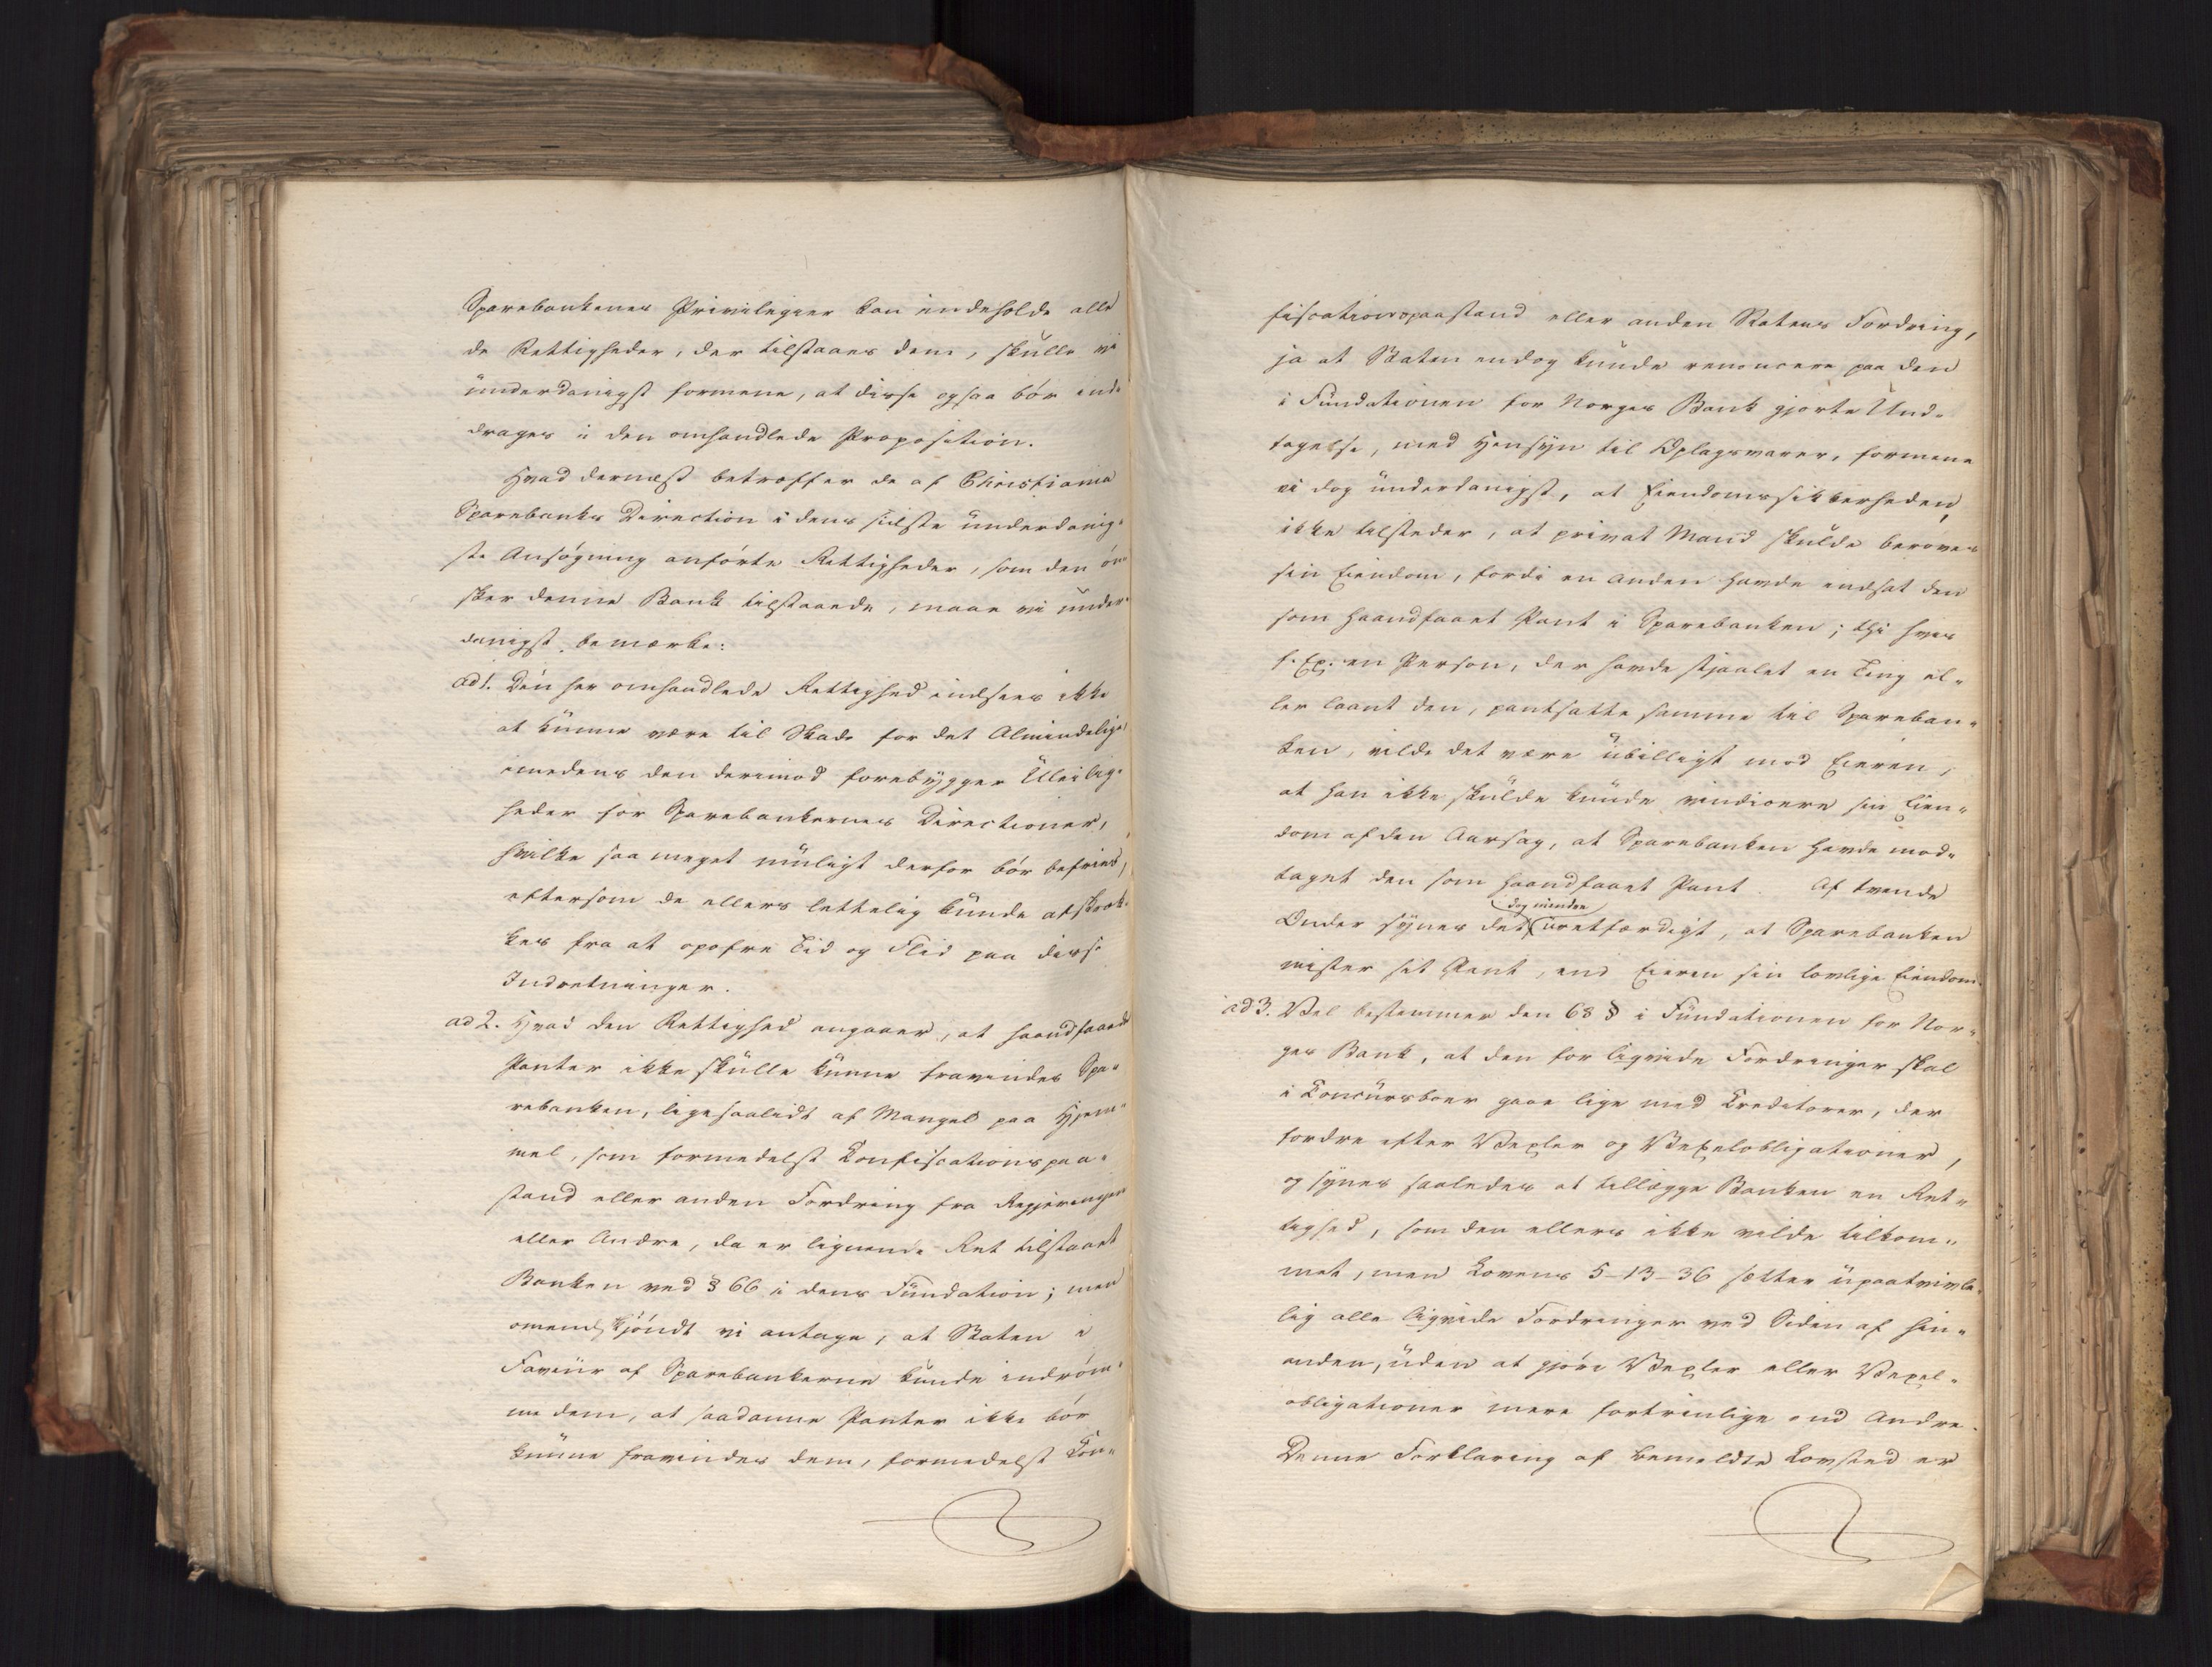 Sparebankenes Privilegier kan indeholde alle
de Rettigheder, der tilstaaes dem, skulle vi
underdanigst formene, at disse ogsaa bör ind-
drages i den omhandlede Proposition.
Hvad dernæst betræffer de af Christiania
Sparebanks Direction i dens sidste underdanig-
ste Ansögning anförte Rettigheder, som den ön-
sker denne Bank tilstaaede, maae vi under-
danigst bemærke:
ad 1. Den her omhandlede Rettighed indsees ikke
at kunne være til Skade for det Almindelige
imedens den derimod forebygger Uleilig-
heder for Sparebankernes Directioner,
hvilke saa meget muligt derfor bör befries,
eftersom de ellers lettelig kunde afskræk-
kes fra at opofre Tid og Flid paa disse
Indretninger.
ad 2. Hvad den Rettighed angaaer, at haandfaaede
Panter ikke skulle kunne fravindes Spa-
rebanken, ligesaalidt af Mangel paa Hjem-
mel, som formedelst Confiscationspaa-
stand eller anden Fordring fra Regjeringen
eller Andre, da er lignende Ret tilstaaet
Banken ved § 66 i dens Fundation; men
omendskjöndt vi antage, at Staten i
Faveur af Sparebankerne kunde indröm-
me dem, at saadanne Panter ikke bör
kunne fravindes dem, formedelst Con-
fiscationspaastand eller anden Statens Fordring,
ja at Staten endog kunde renoncere paa den
i Fundationen for Norges Bank gjorte Und-
tagelse, med Hensyn til Oplagsvarer, formene
vi dog underdanigst, at Eiendomssikkerheden,
ikke tilsteder, at privat Mand skulde beroves
sin Eiendom, fordi en Anden havde indsat den
som haandfaaet Pant i Sparebanken; thi hvis
f. Ex. en Person, der havde stjaalet en Ting el-
ler laant den, pantsatte samme til Spareban-
ken, vilde det være ubilligt mod Eieren,
at han ikke skulde kunde vindicere sin Eien-
dom af den Aarsag, at Sparebanken havde mod-
taget den som haandfaaet Pant. Af tvende
dog mindre
Onder synes det uretfærdigt, at Sparebanken
mister sit Pant, end Eieren sin lovlige Eiendom.
ad 3. Vel bestemmer den 68 § i Fundationen for Nor-
ges Bank, at den for liqvide Fordringer skal
i Concursboer gaae lige med Creditorer, der
fordre efter Vexler og Vexelobligationer,
og synes saaledes at tillægge Banken en Ret-
tighed, som den ellers ikke vilde tilkom-
met, men Lovens 5-13-36 sætter upaatvivle-
lig alle liqvide Fordringer ved Siden af hin-
anden, uden at gjöre Vexler eller Vexel-
obligationer mere fortrinlige end Andre.
Denne Forklaring af bemeldte Lovsted er